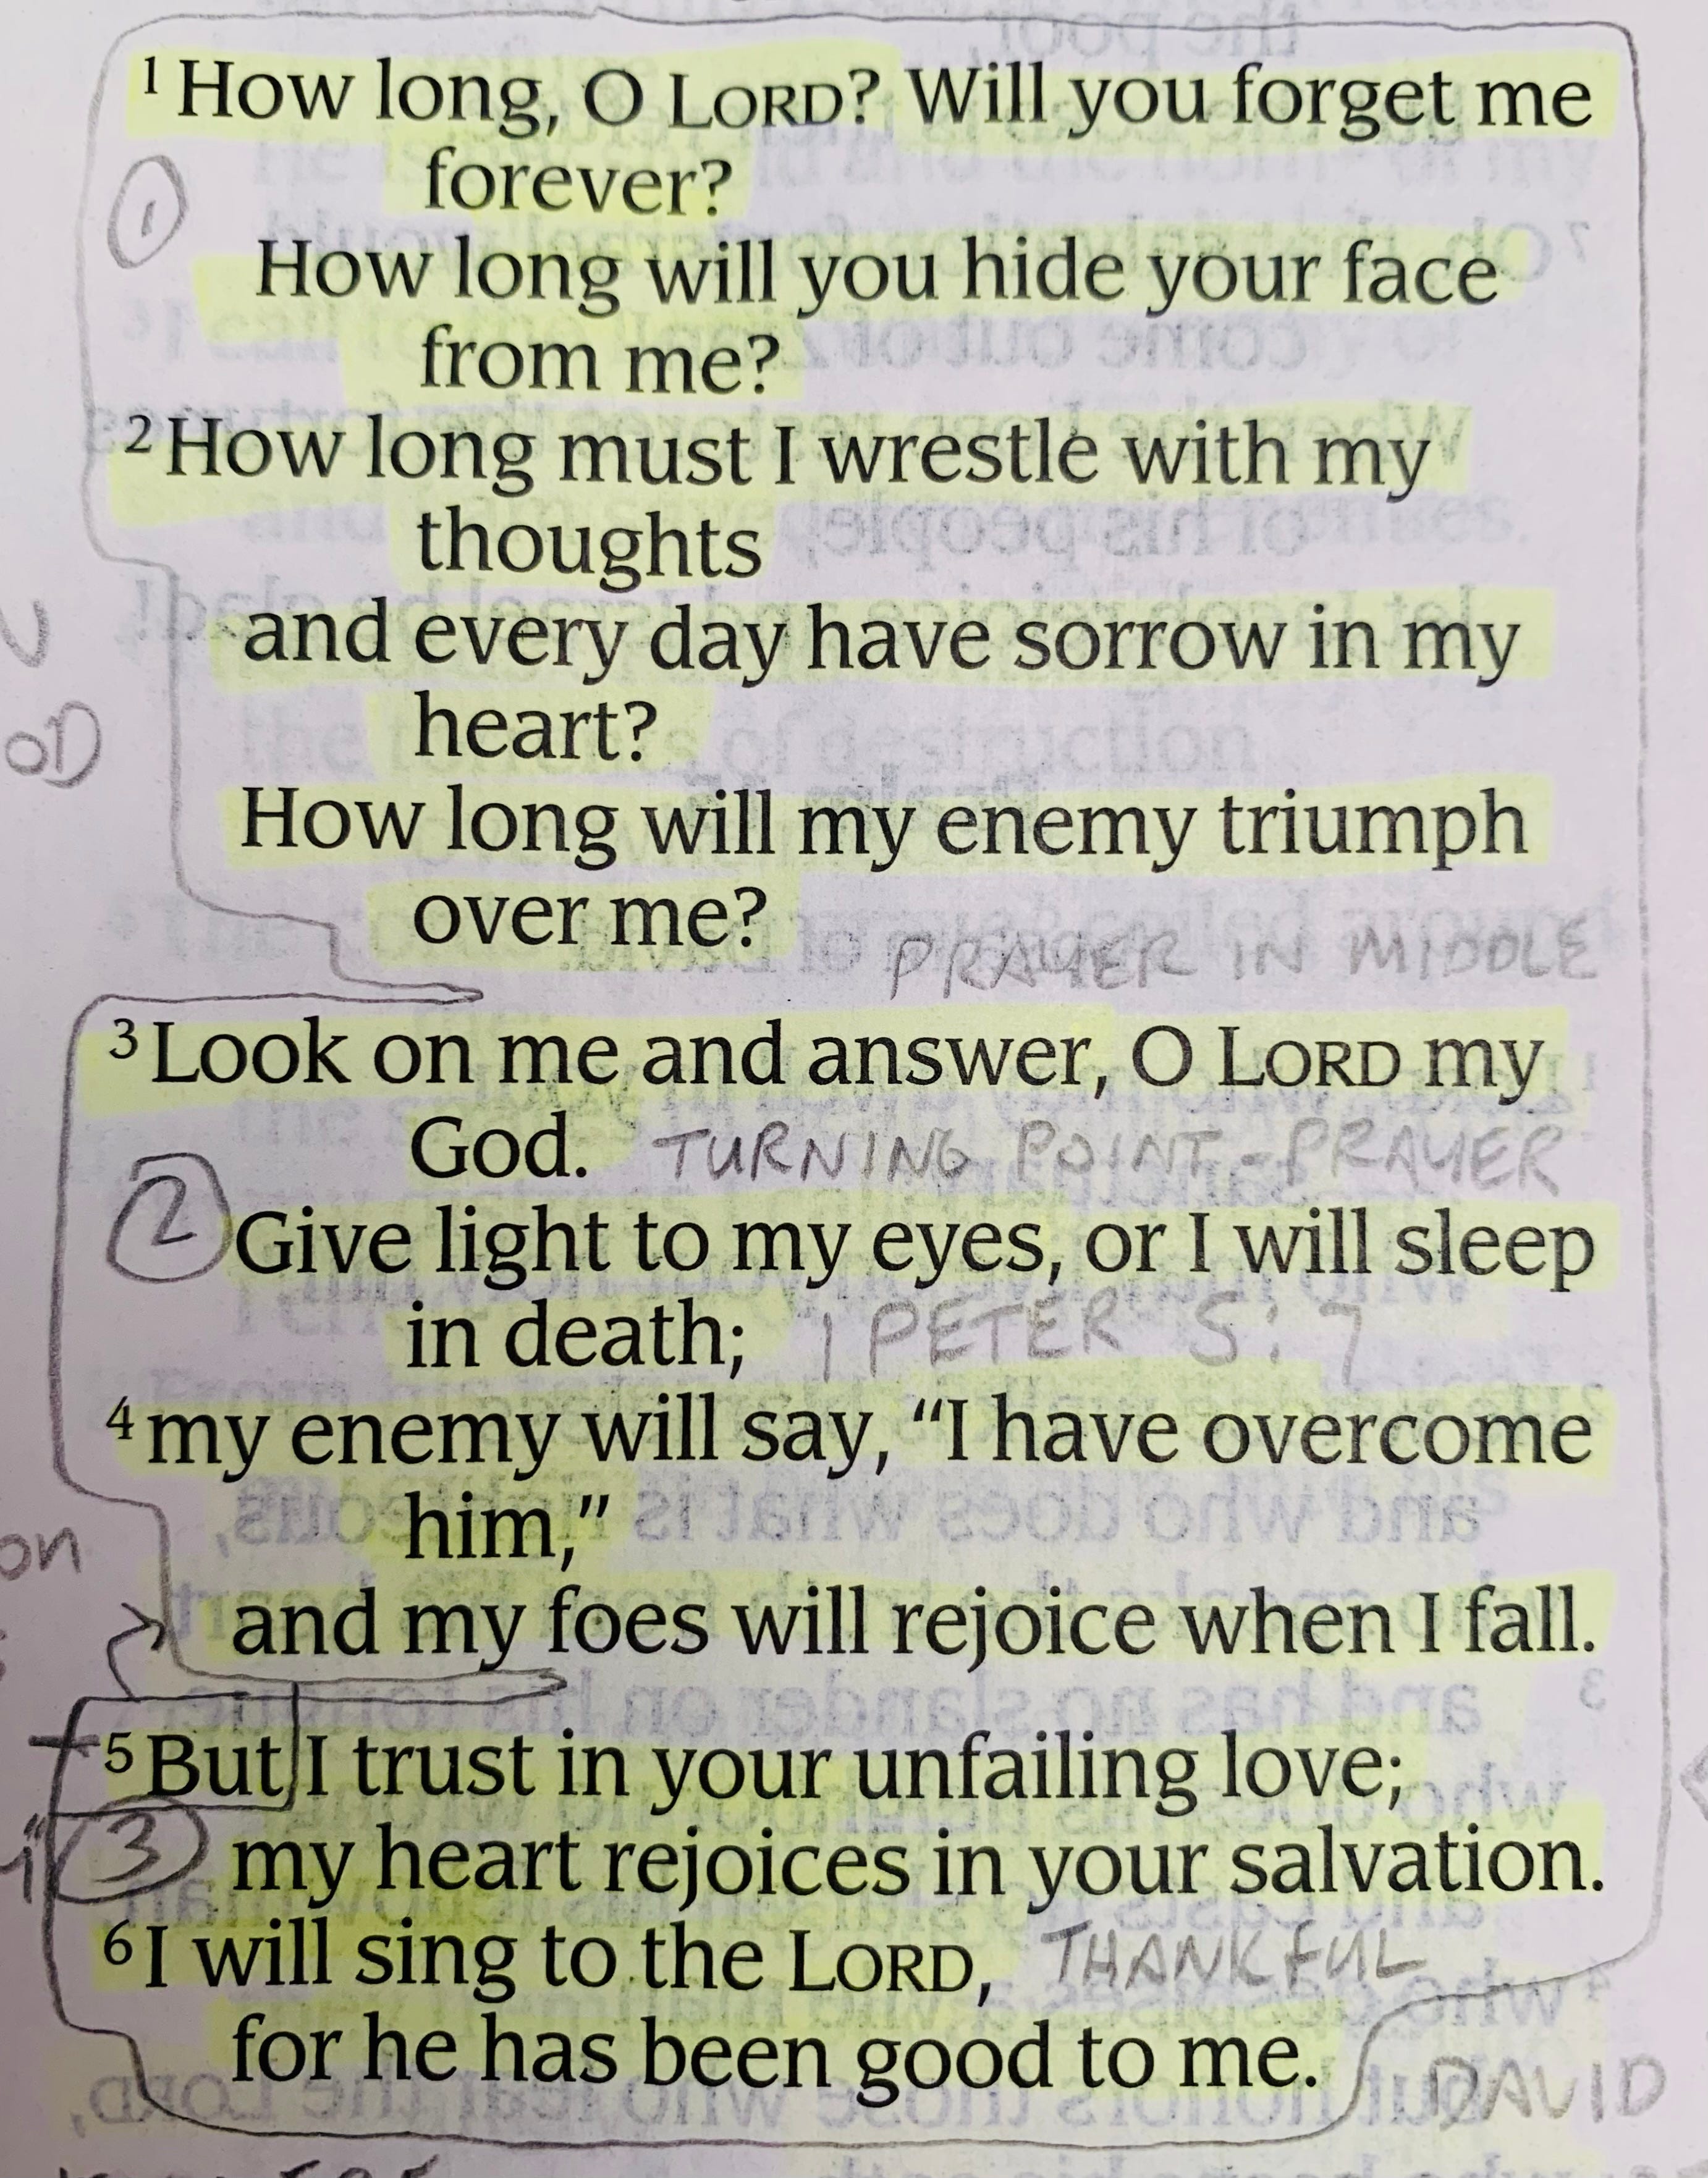 1 How long, O LORD? Will you forget me
forever?
1
How long will you hide your face
from me?
2 How long must I wrestle with my
thoughts
and every day have sorrow in my
heart?
How long will my enemy triumph
over me?
PRAYER IN MIDDLE
3 Look on me and answer, O LORD my
God. TURNING POINT - PRAYER
2
Give light to my eyes, or I will sleep
in death; 1 PETER 5:7
4 my enemy will say, “I have overcome
him,”
and my foes will rejoice when I fall.
5 But I trust in your unfailing love;
3
my heart rejoices in your salvation.
6 I will sing to the LORD, THANKFUL
for he has been good to me.
DAVID